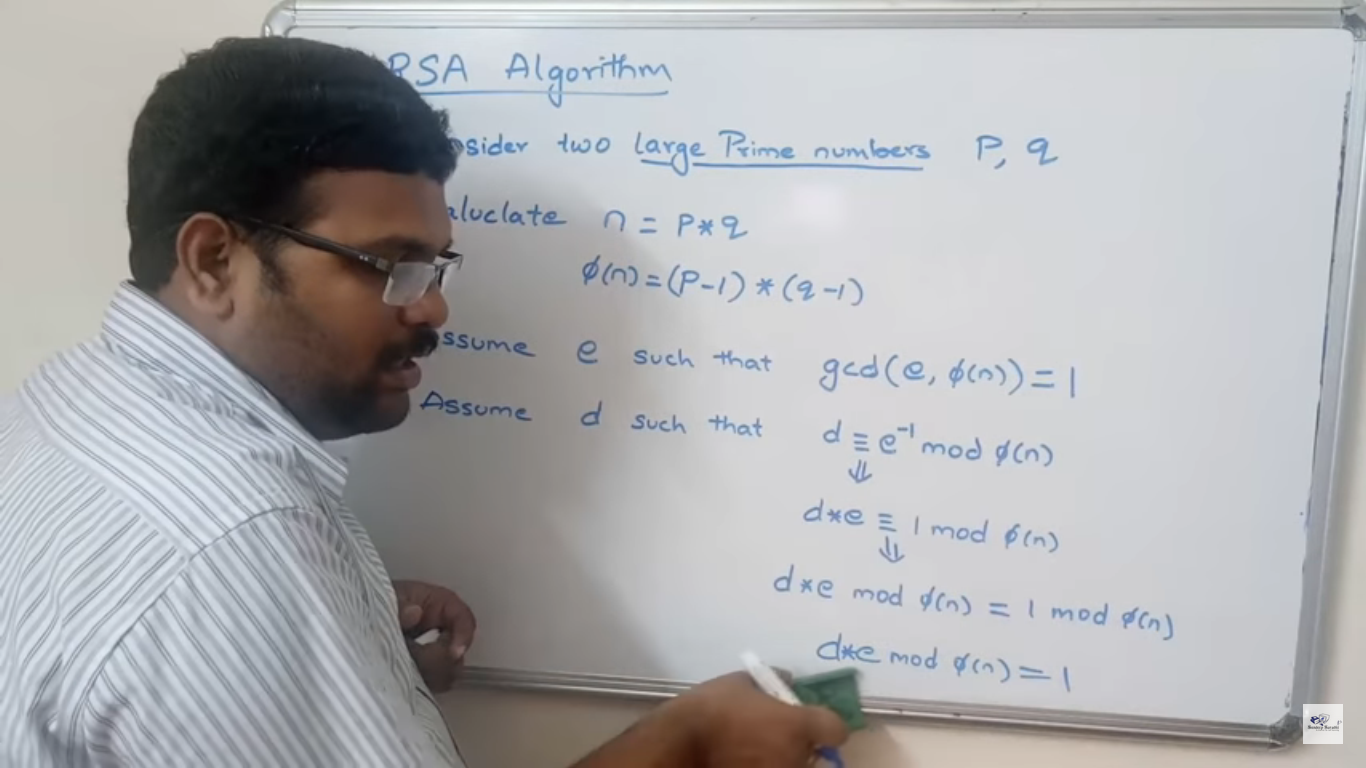 RSA Algorithm
sider two large Prime numbers P, q
aluclate n = P*q
φ(n)=(P-1)*(q-1)
ssume e such that gcd(e, φ(n))=1
Assume d such that d ≡ e⁻¹ mod φ(n)
⇓
d*e ≡ 1 mod φ(n)
⇓
d*e mod φ(n) = 1 mod φ(n)
d*e mod φ(n)=1